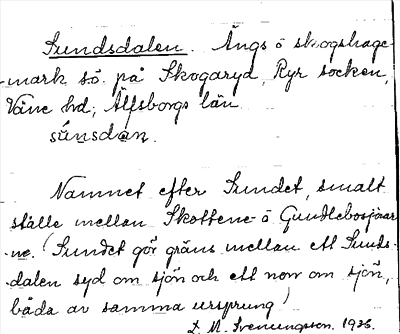 Sundsdalen. Ängs o skogshage-
mark sö. på Skogaryd, Ryr socken,
Väne hd, Älfsborgs län.
súnsdan.
Namnet efter Sundet, smalt
ställe mellan Skottene- o Gundlebosjöar-
ne. (Sundet gör gräns mellan ett Sunds-
dalen syd om sjön och ett norr om sjön,
båda av samma ursprung)
L. M. Svenungson. 1936.